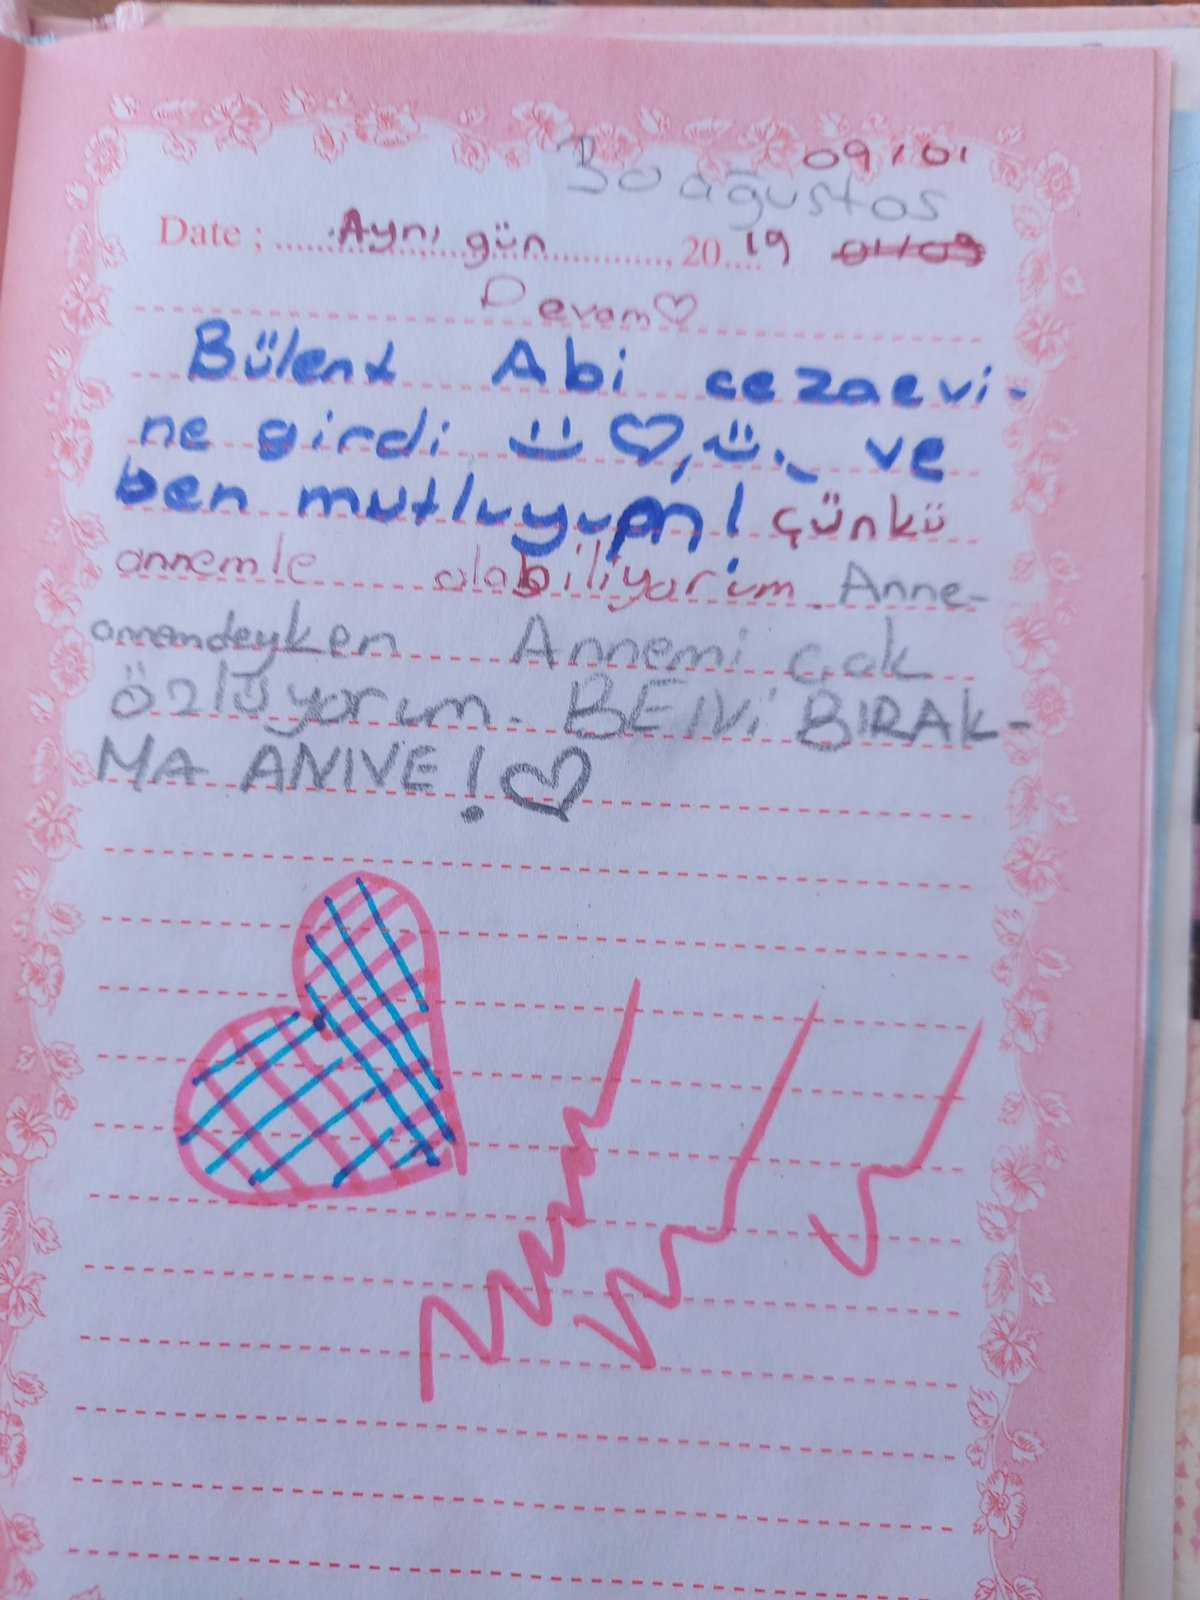 09/01
30 ağustos
Date ; Aynı gün, 2019 01/09
Devam♡
Bülent Abi cezaevi-
ne girdi ♡, ve
ben mutluyum! Çünkü
annemle olabiliyorum. Anne-
annemdeyken Annemi çok
özlüyorum. BENİ BIRAK-
MA ANNE!♡